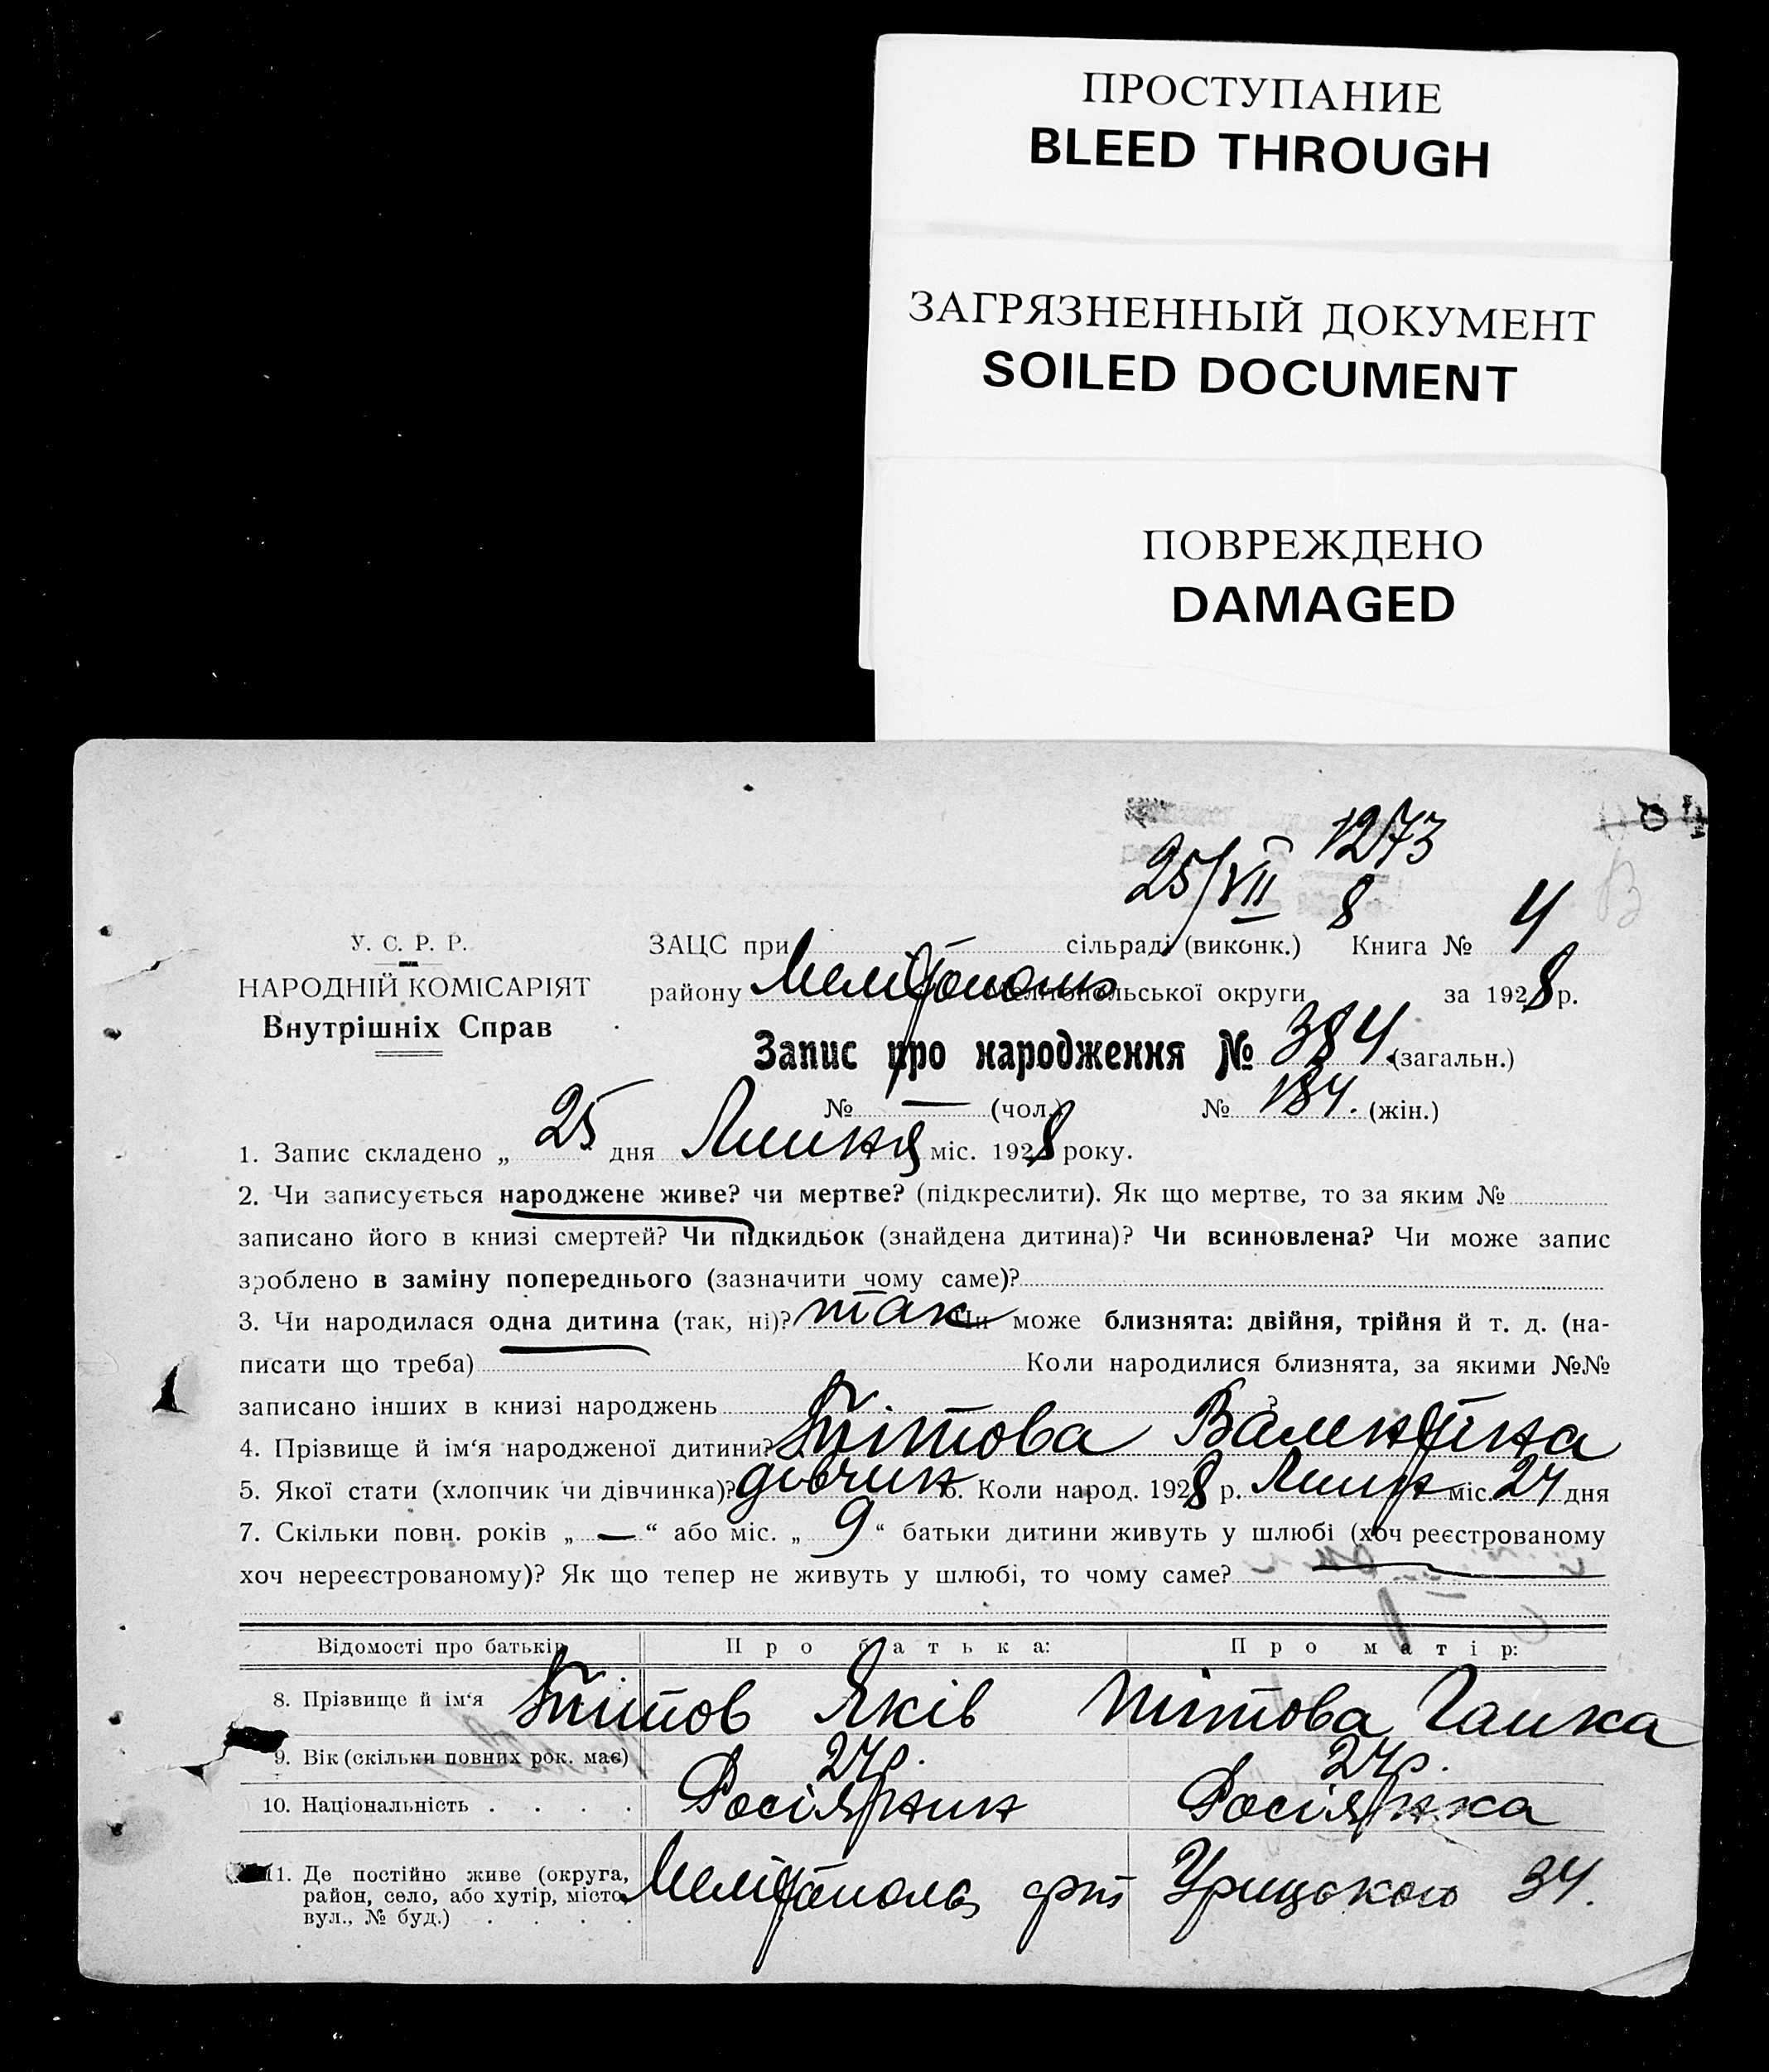 ПРОСТУПАНИЕ
BLEED THROUGH
ЗАГРЯЗНЕННЫЙ ДОКУМЕНТ
SOILED DOCUMENT
ПОВРЕЖДЕНО
DAMAGED
1273
25/VII 8 4
У. С. Р. Р.
НАРОДНІЙ КОМІСАРІЯТ
Внутрішніх Справ
ЗАЦС при — сільраді (виконк.) Книга №
району Мелітополь Мелітопольської округи за 1928 р.
Запис про народження № 384. (загальн.)
№ — (чол.) № 184. (жін.)
1. Запис складено „ 25 дня Липня міс. 1928 року.
2. Чи записується народжене живе? чи мертве? (підкреслити). Як що мертве, то за яким №
записано його в книзі смертей? Чи підкидьок (знайдена дитина)? Чи всиновлена? Чи може запис
зроблено в заміну попереднього (зазначити чому саме)?
3. Чи народилася одна дитина (так, ні)? так Чи може близнята: двійня, трійня й т. д. (на-
писати що треба) Коли народилися близнята, за якими №№
записано інших в книзі народжень
4. Прізвище й ім‘я народженої дитини? Тітова Валентина
5. Якої стати (хлопчик чи дівчинка)? дівчин 6. Коли народ. 1928 р. Липн міс. 24 дня
7. Скільки повн. років „ — “ або міс. „ 9 “ батьки дитини живуть у шлюбі (хоч реєстрованому
хоч нереєстрованому)? Як що тепер не живуть у шлюбі, то чому саме?
Відомості про батьків Про батька: Про матір:
8. Прізвище й ім‘я Тітов Яків Тітова Ганка
9. Вік (скільки повних рок. має) 27р. 27р.
10. Національність . . . . Росіянин Росіянка
11. Де постійно живе (округа,
район, село, або хутір, місто,
вул., № буд.) . . . . Мелітополь Урицького 34.